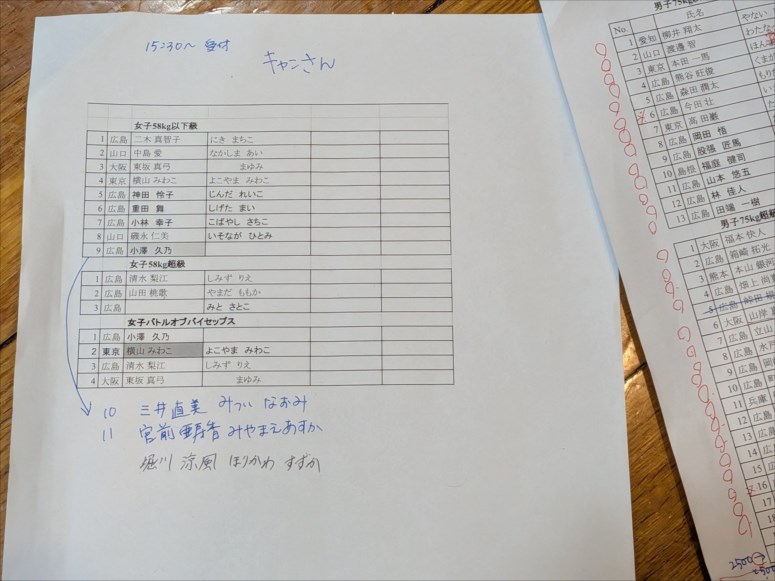 15:30〜 受付
キャンさん
女子58kg以下級
1 広島 二木 真智子 にき まちこ
2 山口 中島 愛 なかしま あい
3 大阪 東坂 真弓 まゆみ
4 東京 横山 みわこ よこやま みわこ
5 広島 神田 怜子 じんだ れいこ
6 広島 重田 舞 しげた まい
7 広島 小林 幸子 こばやし さちこ
8 山口 磯永 仁美 いそなが ひとみ
9 広島 小澤 久乃
女子58kg超級
1 広島 清水 梨江 しみず りえ
2 広島 山田 桃歌 やまだ ももか
3 広島 みと さとこ
女子バトルオブバイセップス
1 広島 小澤 久乃
2 東京 横山 みわこ よこやま みわこ
3 広島 清水 梨江 しみず りえ
4 大阪 東坂 真弓 まゆみ
10 三井直美 みつい なおみ
11 宮前 みやまえあすか
堀川 涼風 ほりかわ すずか
男子75kg
No. 氏名
1 愛知 柳井 翔太 やない
2 山口 渡邊 智 わたな
3 東京 本田 一馬 ほん
4 広島 熊谷 旺俊 くまが
5 広島 森田 潤太 もり
6 広島 今田 壮
7 東京 高田 巌
8 広島 岡田 悟
9 広島 股張 匠馬
10 島根 福庭 健司
11 広島 山本 悠五
12 広島 林 佳人
13 広島 田端 一樹
男子75kg超級
1 大阪 福本 快人
2 広島 箱崎 拓光
3 熊本 本山 銀河
4 広島 畑上 尚
5 広島
6 大阪 山岸
7 広島 立山
8 広島 水戸
9 広島 岡
10 広島
11 兵庫
12 広島
13 広島
14 広島
15 広島
16 広
17 広
18
2500